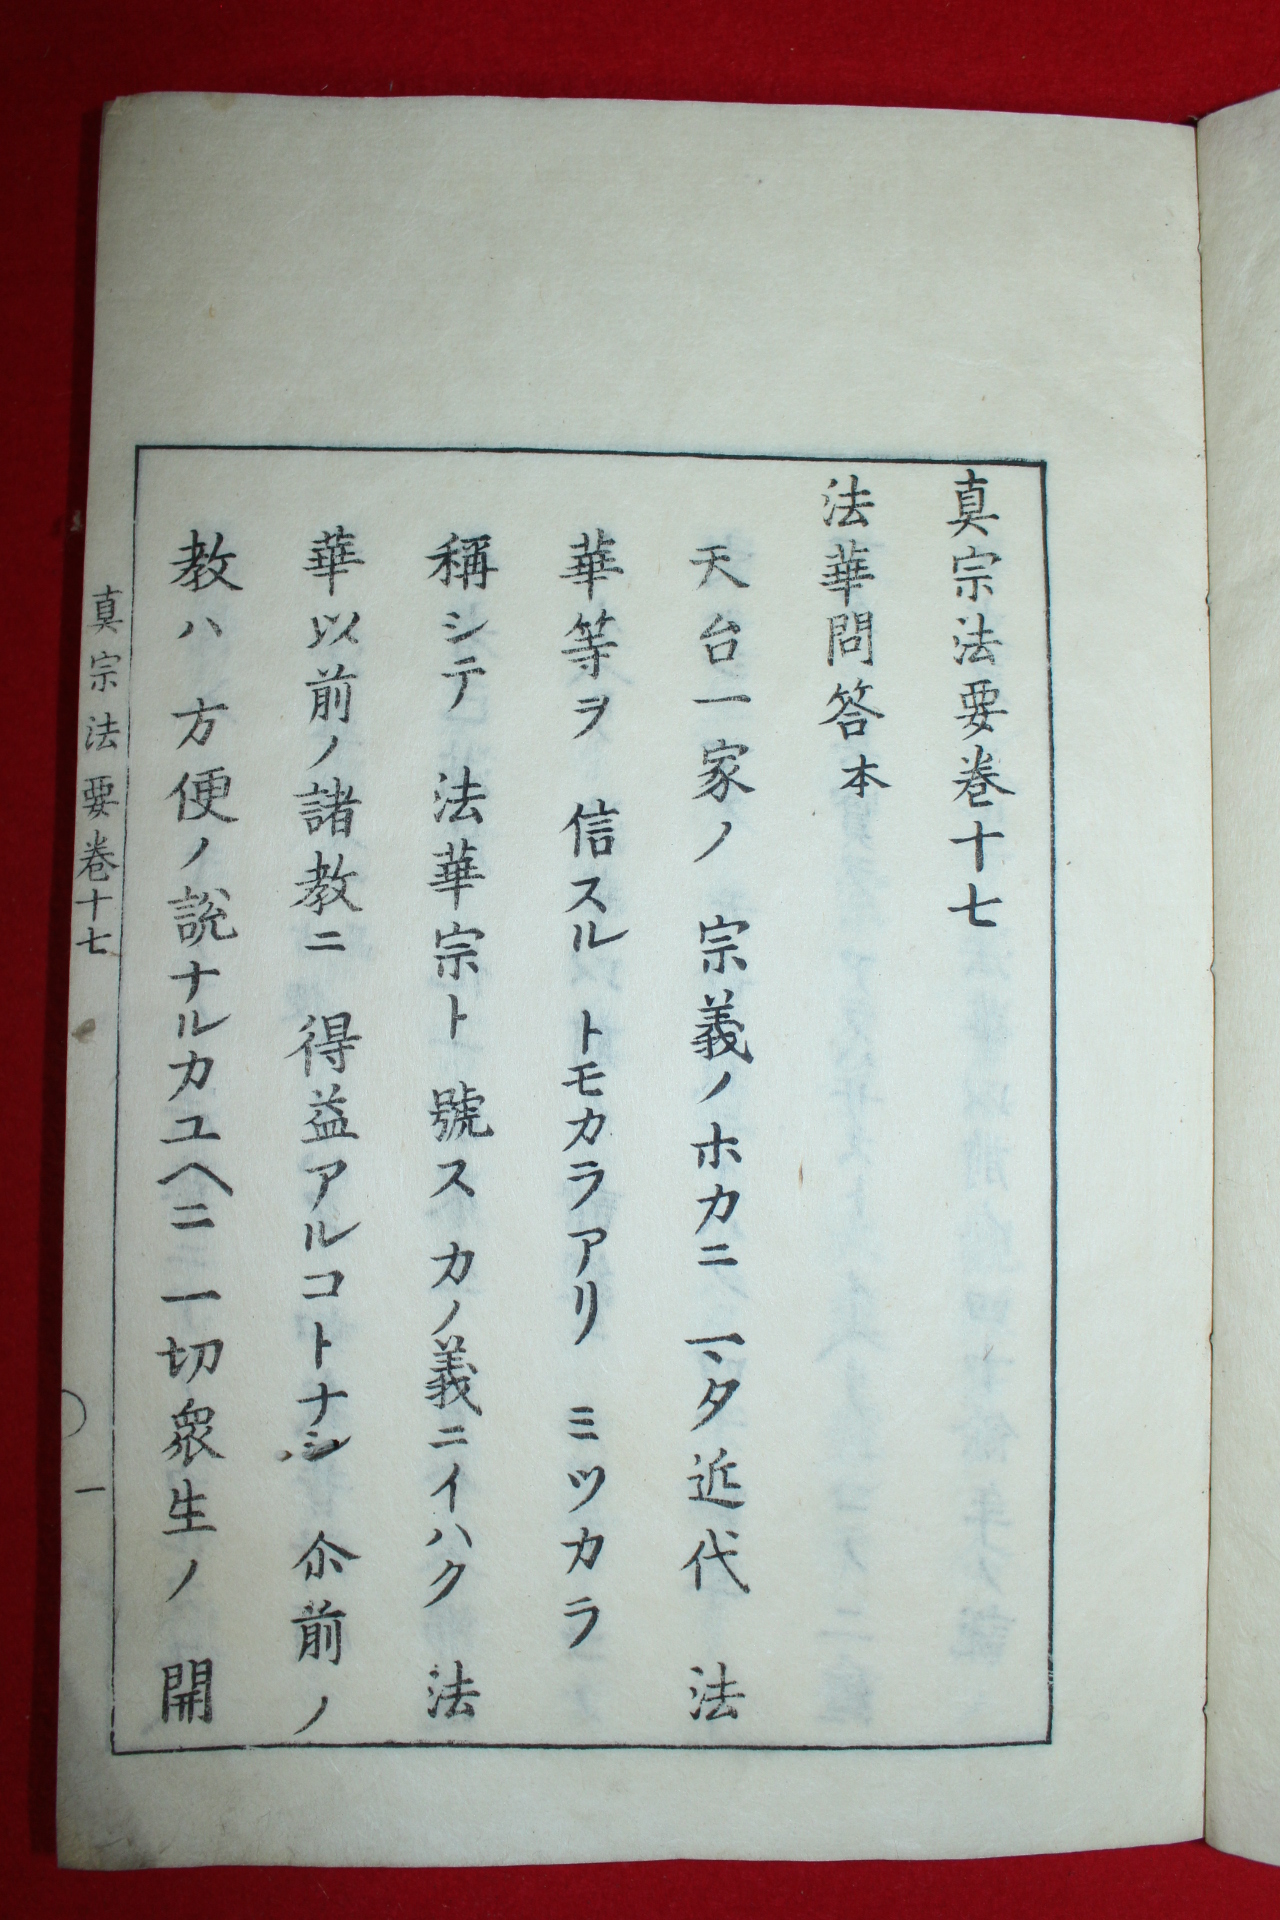 真宗法要巻十七
法華問答本
天台一家ノ宗義ノホカニマタ近代法
華等ヲ信スルトモカラアリミツカラ
稱シテ法華宗ト號スカノ義ニイハク法
華以前ノ諸教ニ得益アルコトナシ尒前ノ
教ハ方便ノ說ナルカユヘニ一切衆生ノ開
真宗法要巻十七
一